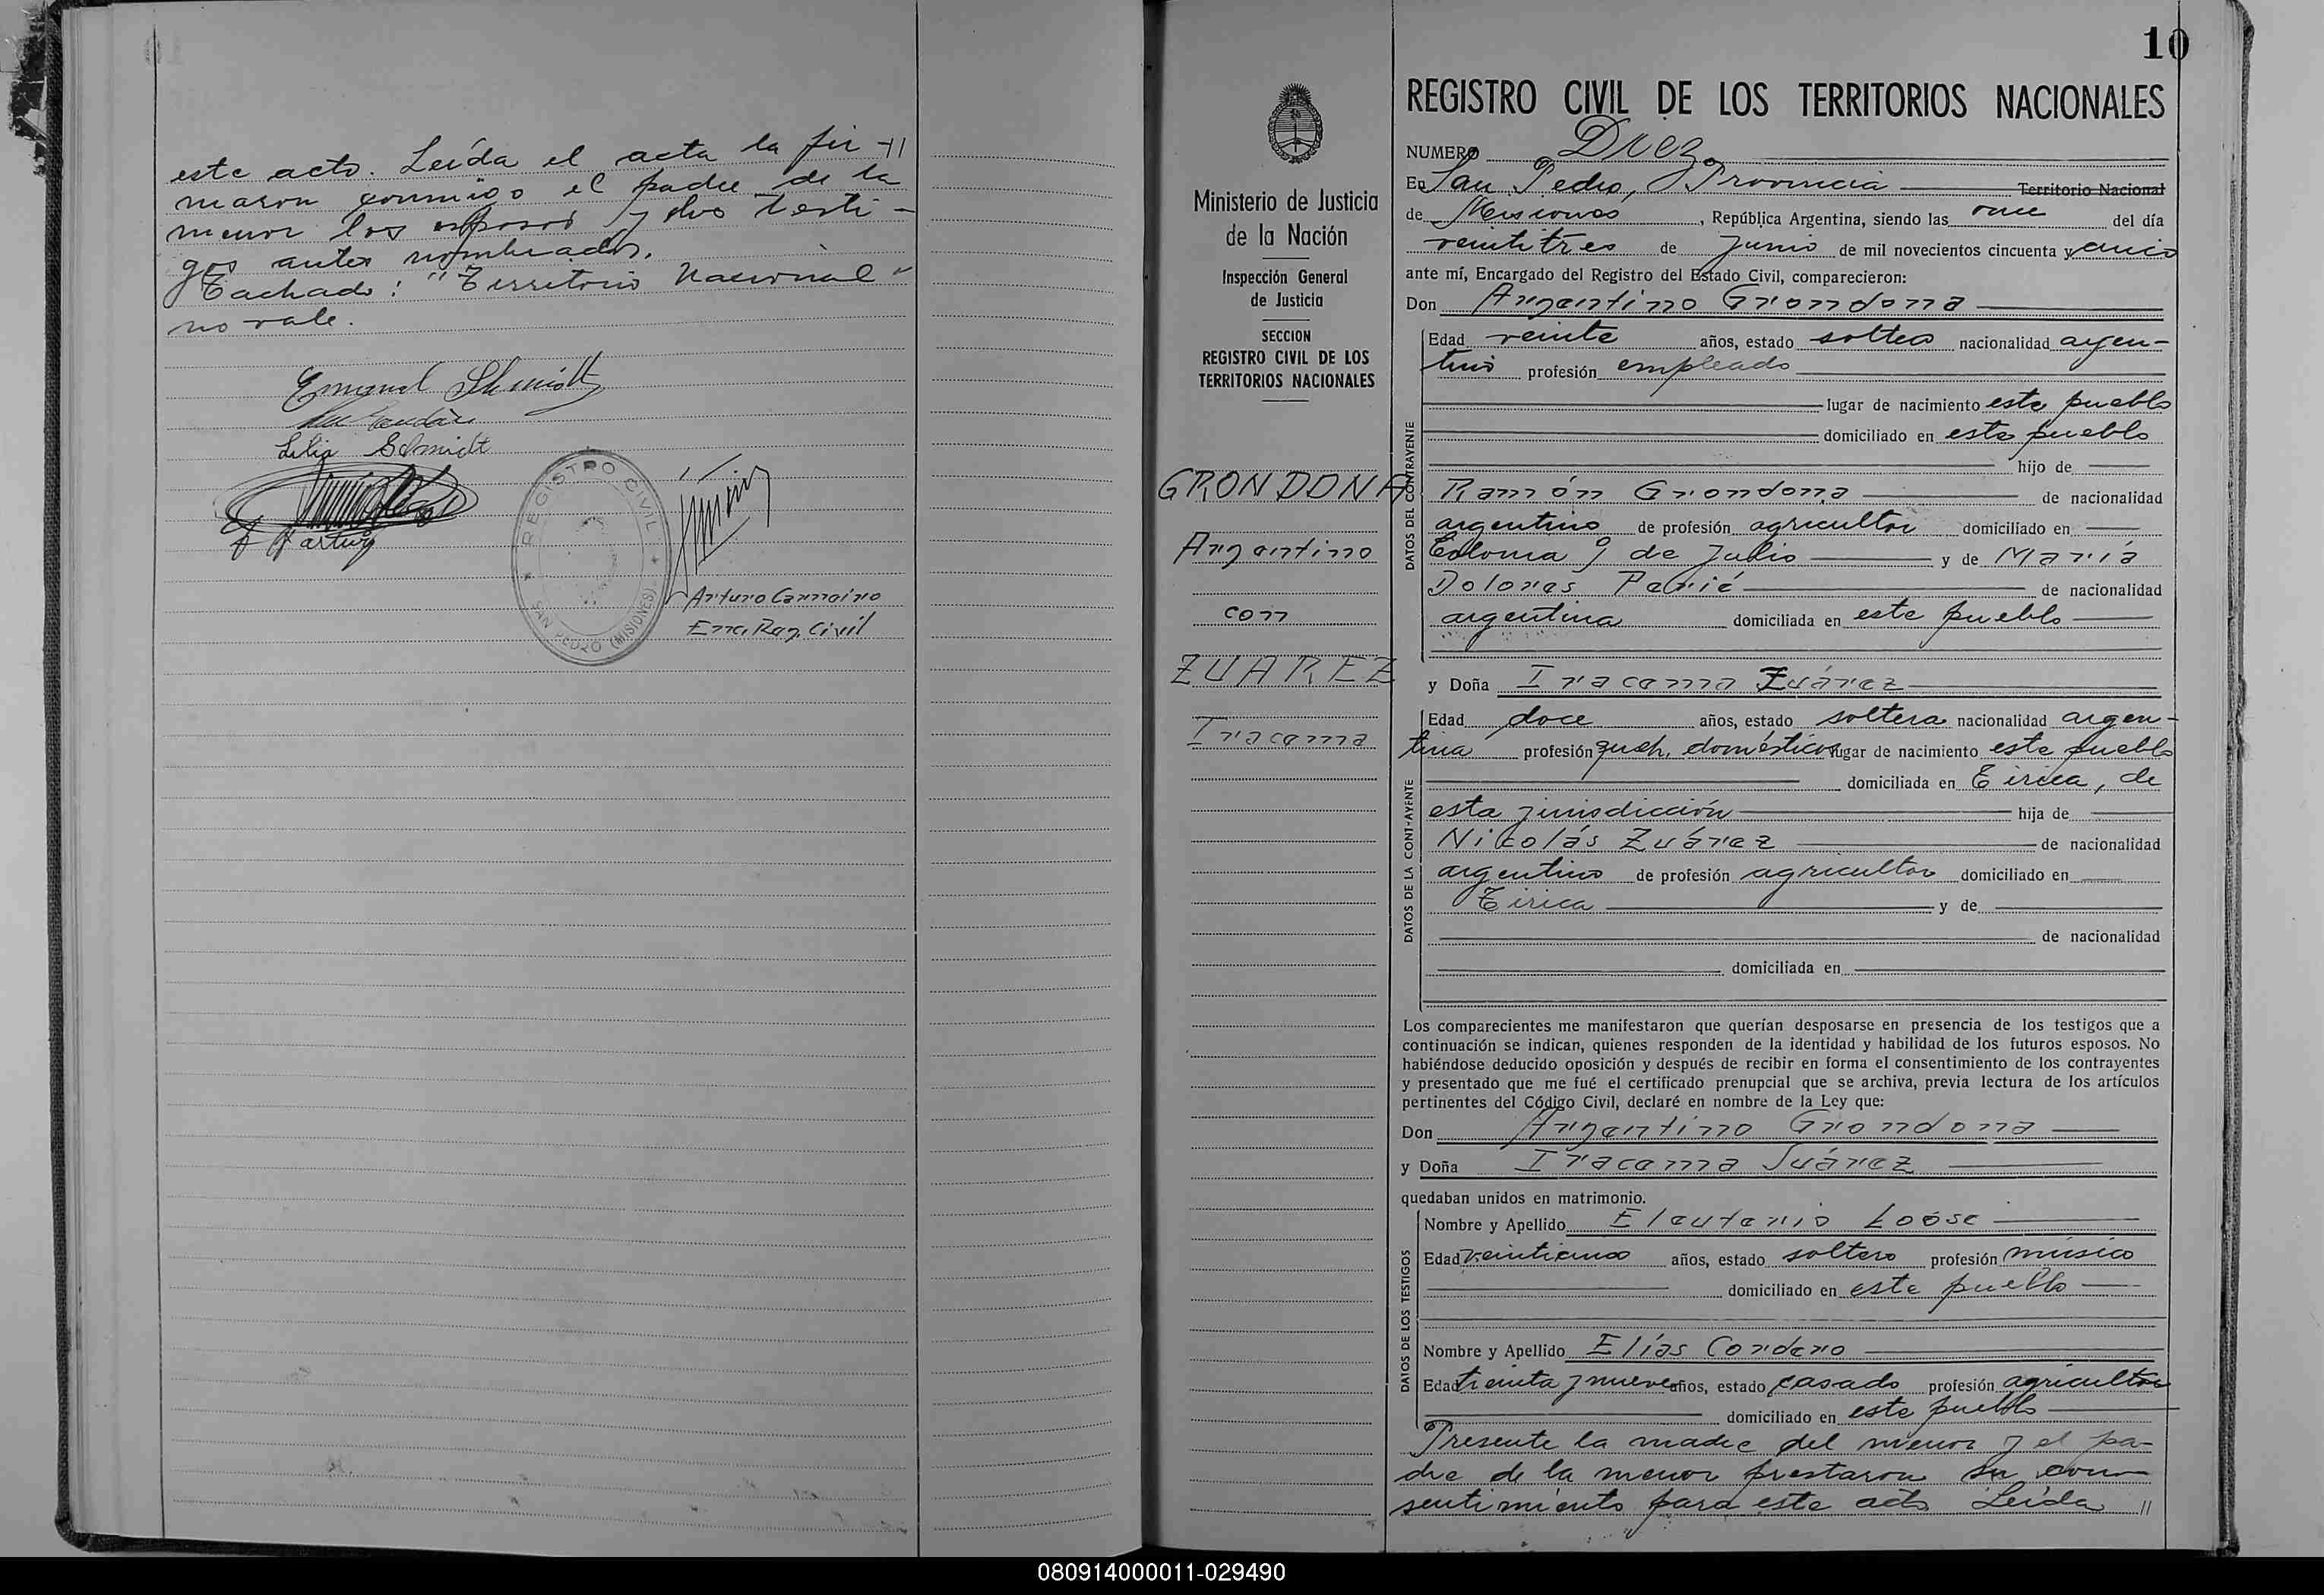 este acto. Leída el acta la fir-//
maron conmigo el padre de la
menor los esposos y dos testi-
gos antes nombrados.
Tachado: "Territorio Nacional"
no vale.
Emanuel Schmidt
Lilia Schmidt
Hartwig
REGISTRO CIVIL
SAN PEDRO (MISIONES)
Arturo Cannaino
Enc. Reg. Civil
10
Ministerio de Justicia
de la Nación
Inspección General
de Justicia
SECCION
REGISTRO CIVIL DE LOS
TERRITORIOS NACIONALES
GRONDONA
Argentino
con
ZUAREZ
Iracema
REGISTRO CIVIL DE LOS TERRITORIOS NACIONALES
NUMERO Diez
En San Pedro, Provincia Territorio Nacional
de Misiones, República Argentina, siendo las once del día
veintitres de Junio de mil novecientos cincuenta y cinco
ante mí, Encargado del Registro del Estado Civil, comparecieron:
Don Argentino Grondona
DATOS DEL CONTRAYENTE
Edad veinte años, estado soltero nacionalidad argen-
tino profesión empleado
lugar de nacimiento este pueblo
domiciliado en este pueblo
hijo de
Ramón Grondona de nacionalidad
argentino de profesión agricultor domiciliado en
Colonia 9 de Julio y de María
Dolores Perié de nacionalidad
argentina domiciliada en este pueblo
y Doña Iracema Zuárez
DATOS DE LA CONTRAYENTE
Edad doce años, estado soltera nacionalidad argen-
tina profesión queh. domésticos lugar de nacimiento este pueblo
domiciliada en Tirica, de
esta jurisdicción hija de
Nicolás Zuárez de nacionalidad
argentino de profesión agricultor domiciliado en
Tirica y de
de nacionalidad
domiciliada en
Los comparecientes me manifestaron que querían desposarse en presencia de los testigos que a
continuación se indican, quienes responden de la identidad y habilidad de los futuros esposos. No
habiéndose deducido oposición y después de recibir en forma el consentimiento de los contrayentes
y presentado que me fué el certificado prenupcial que se archiva, previa lectura de los artículos
pertinentes del Código Civil, declaré en nombre de la Ley que:
Don Argentino Grondona
y Doña Iracema Suárez
quedaban unidos en matrimonio.
DATOS DE LOS TESTIGOS
Nombre y Apellido Eleuterio Loose
Edad veinticinco años, estado soltero profesión músico
domiciliado en este pueblo
Nombre y Apellido Elías Cordero
Edad treinta y nueve años, estado casado profesión agricultor
domiciliado en este pueblo
Presente la madre del menor y el pa-
dre de la menor prestaron su con-
sentimiento para este acto Leída //
080914000011-029490